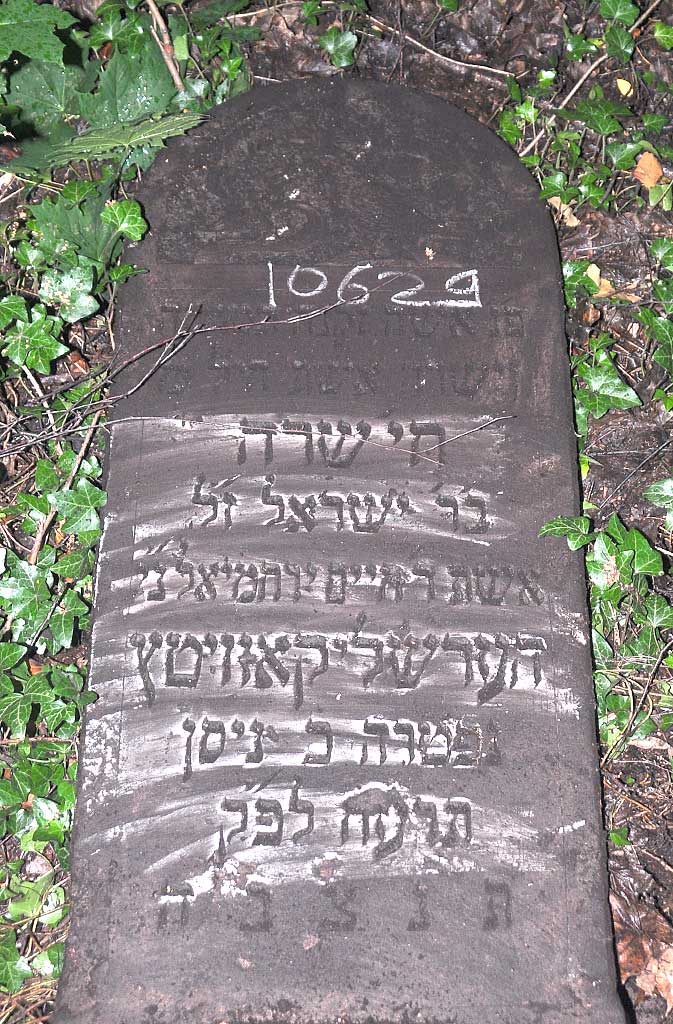 10629
חי' שרה
בר ישראל ז"ל
אשת ר' חיים ירחמיאל נ"י
הענדשליקאוויטץ
נפטרה כ' ניסן
תרע"ה לפ"ג
ת נ צ ב ה